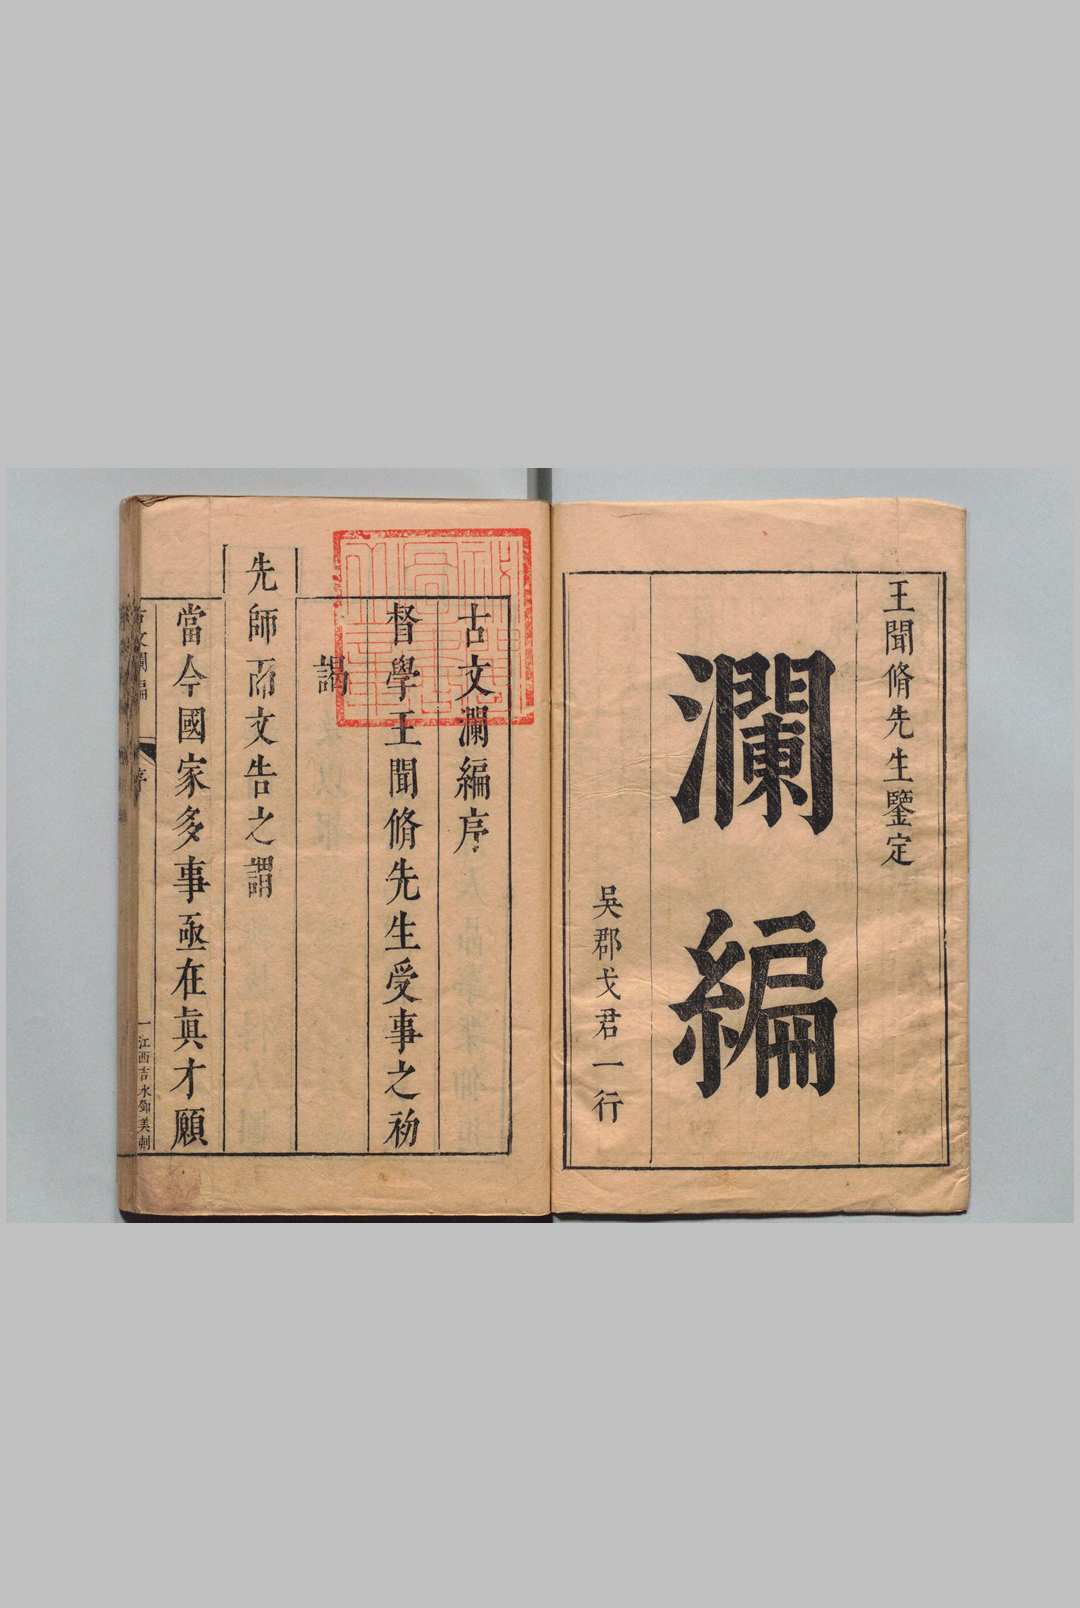 王聞脩先生鑒定
瀾編
吳郡戈君一行
古文瀾編序
督學王聞脩先生受事之初
謁
先師而文告之謂
當今國家多事亟在眞才願
古文瀾編
序
一
江西吉水鄧美刺